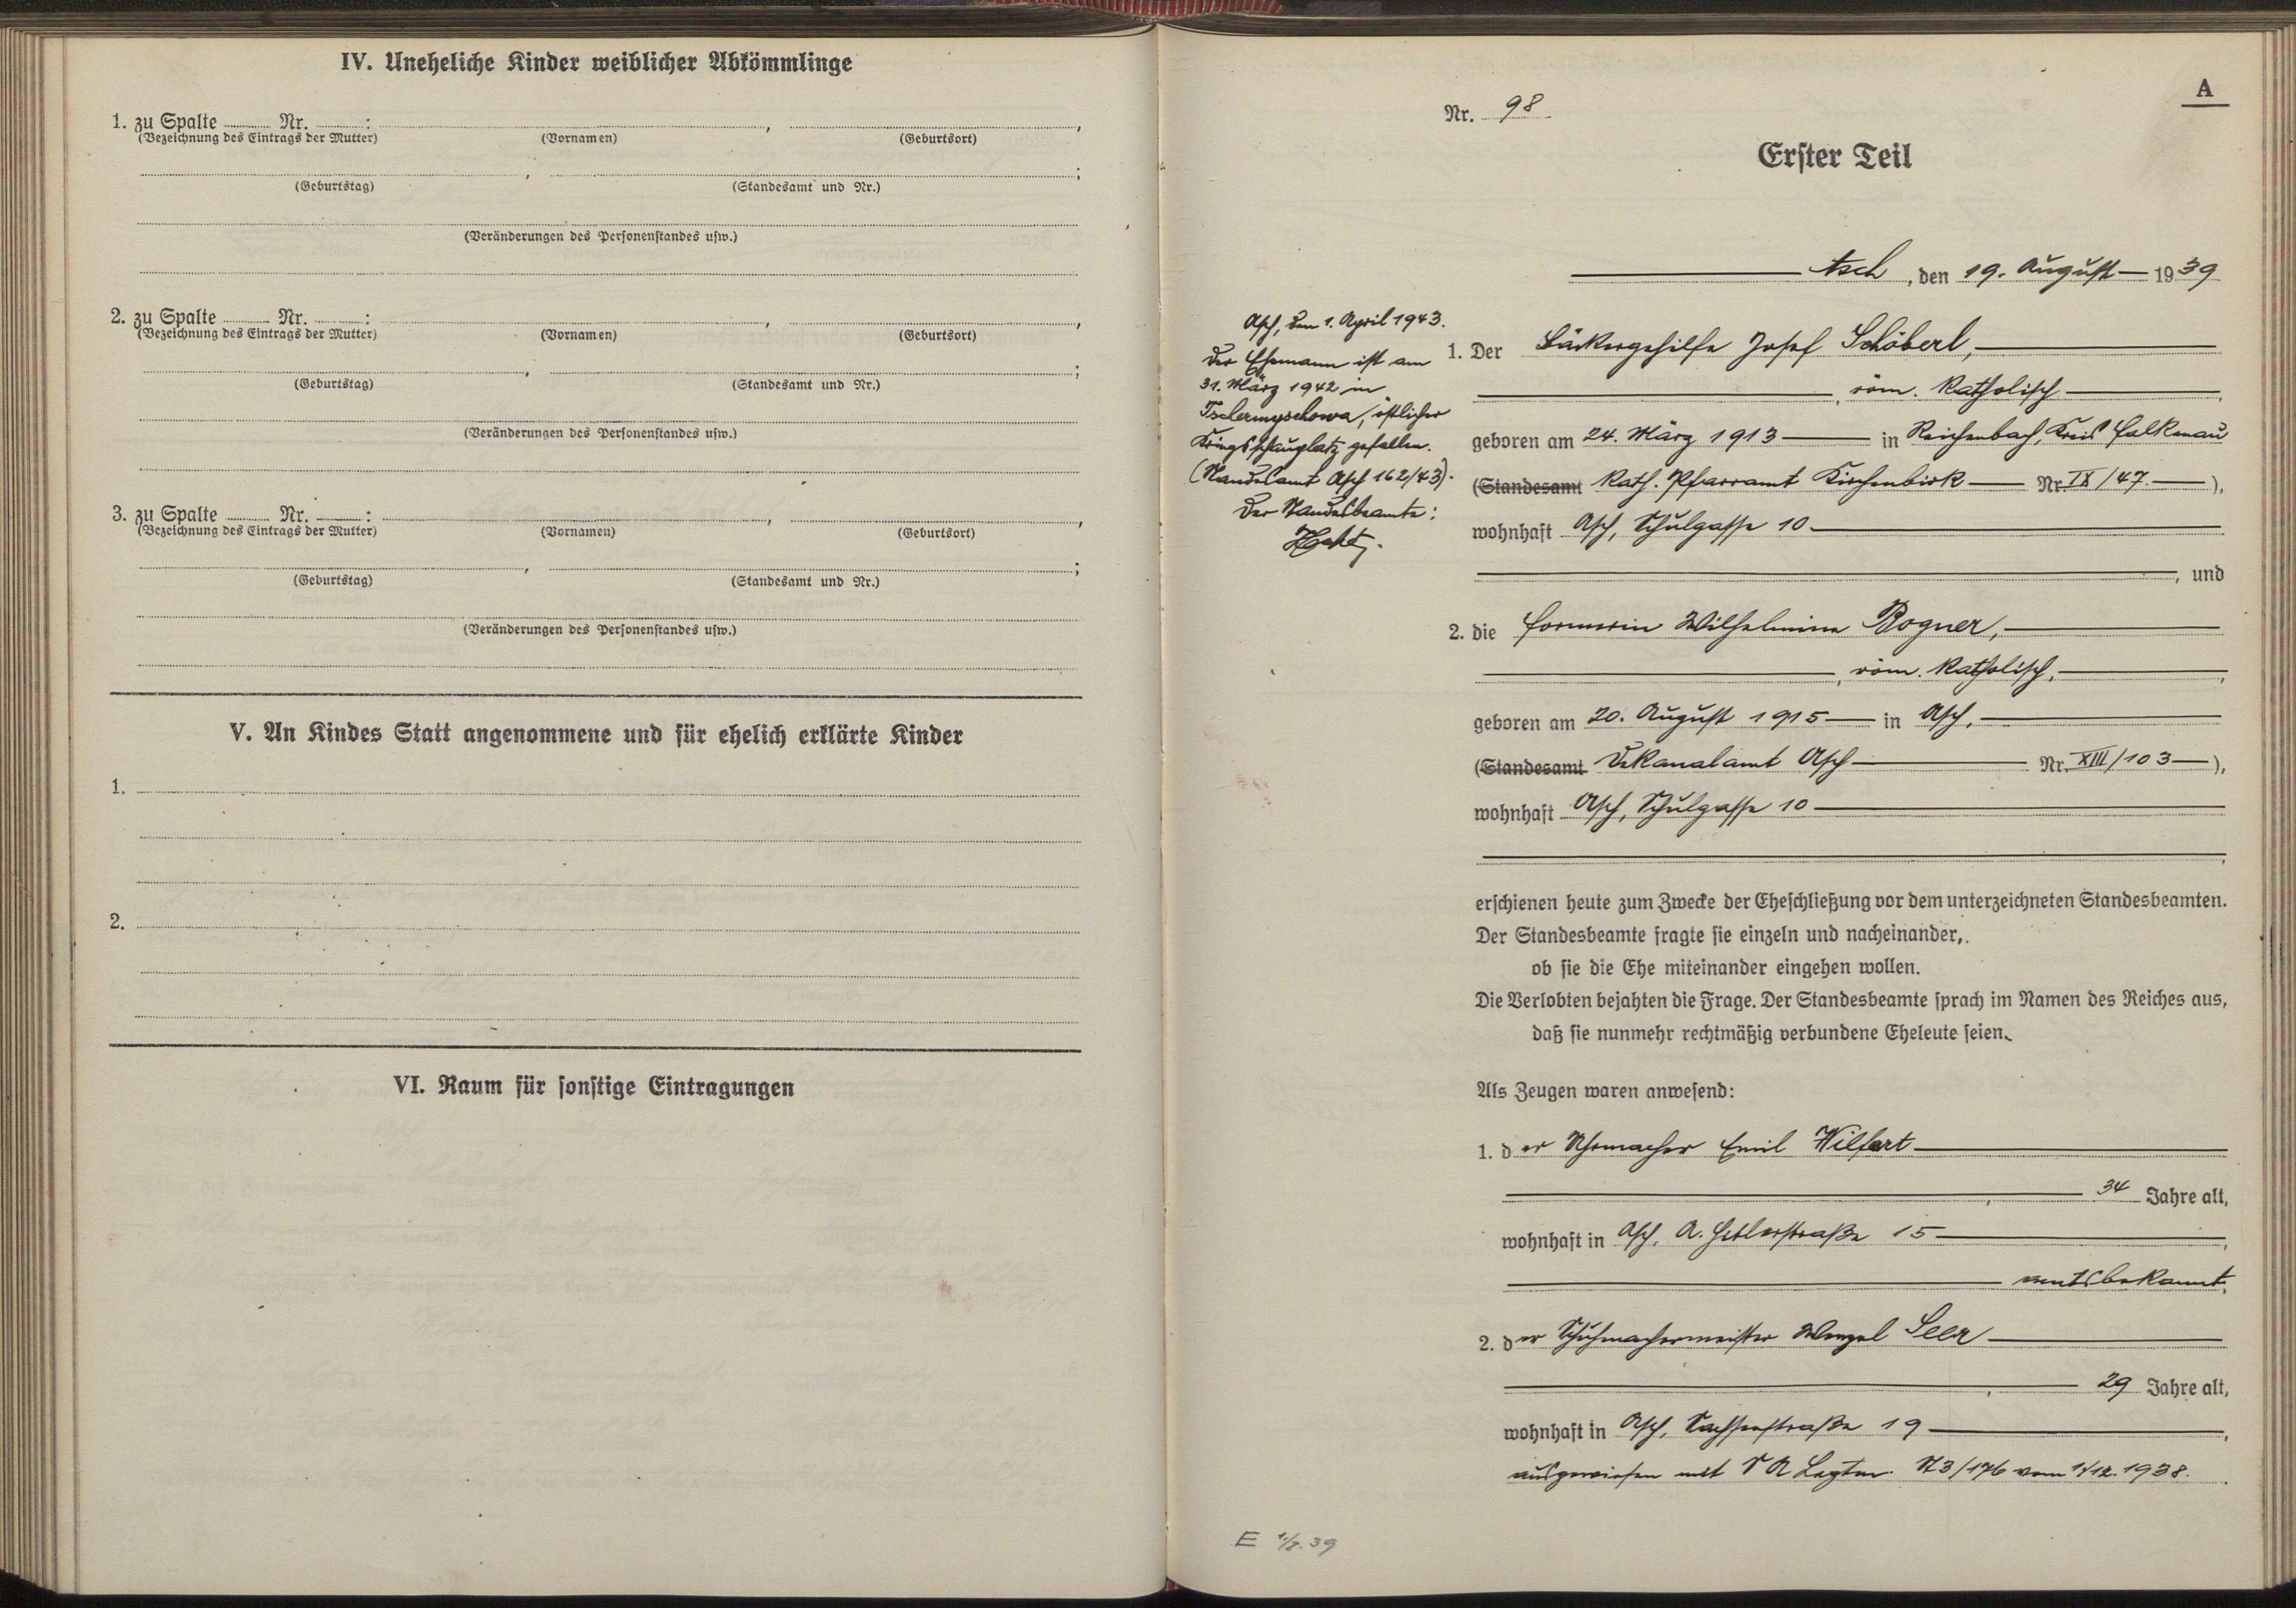 IV. Uneheliche Kinder weiblicher Abkömmlinge
1. zu Spalte ........ Nr. ........:
(Bezeichnung des Eintrags der Mutter) (Vornamen) (Geburtsort)
(Geburtstag) (Standesamt und Nr.)
(Veränderungen des Personenstandes usw.)
2. zu Spalte ........ Nr. ........:
(Bezeichnung des Eintrags der Mutter) (Vornamen) (Geburtsort)
(Geburtstag) (Standesamt und Nr.)
(Veränderungen des Personenstandes usw.)
3. zu Spalte ........ Nr. ........:
(Bezeichnung des Eintrags der Mutter) (Vornamen) (Geburtsort)
(Geburtstag) (Standesamt und Nr.)
(Veränderungen des Personenstandes usw.)
V. An Kindes Statt angenommene und für ehelich erklärte Kinder
1.
2.
VI. Raum für sonstige Eintragungen
A
Nr. 98
Erster Teil
Asch, den 19. August 1939
Asch, den 1. April 1943.
Der Ehemann ist am
31. März 1942 in
Tschermyschowa, östlicher
Kriegsschauplatz gefallen.
(Standesamt Asch 162/43).
Der Standesbeamte:
1. Der Bäckergehilfe Josef Schöberl,
, röm. katholisch,
geboren am 24. März 1913 in Reichenbach, Kreis Falkenau
(Standesamt Kath. Pfarramt Kirchenbirk Nr. IX/47.),
wohnhaft Asch, Schulgasse 10
, und
2. die Formerin Wilhelmine Bogner,
, röm. katholisch,
geboren am 20. August 1915 in Asch,
(Standesamt Dekanalamt Asch Nr. XIII/103),
wohnhaft Asch, Schulgasse 10
erschienen heute zum Zwecke der Eheschließung vor dem unterzeichneten Standesbeamten.
Der Standesbeamte fragte sie einzeln und nacheinander,
ob sie die Ehe miteinander eingehen wollen.
Die Verlobten bejahten die Frage. Der Standesbeamte sprach im Namen des Reiches aus,
daß sie nunmehr rechtmäßig verbundene Eheleute seien.
Als Zeugen waren anwesend:
1. der Uhrmacher Emil Wilfert
, 34 Jahre alt,
wohnhaft in Asch, A. Hitlerstraße 15,
amtsbekannt,
2. der Schuhmachermeister Wenzel Seer
, 29 Jahre alt,
wohnhaft in Asch, Sachsenstraße 19,
ausgewiesen mit S A vom 1/12. 1938.
E 39